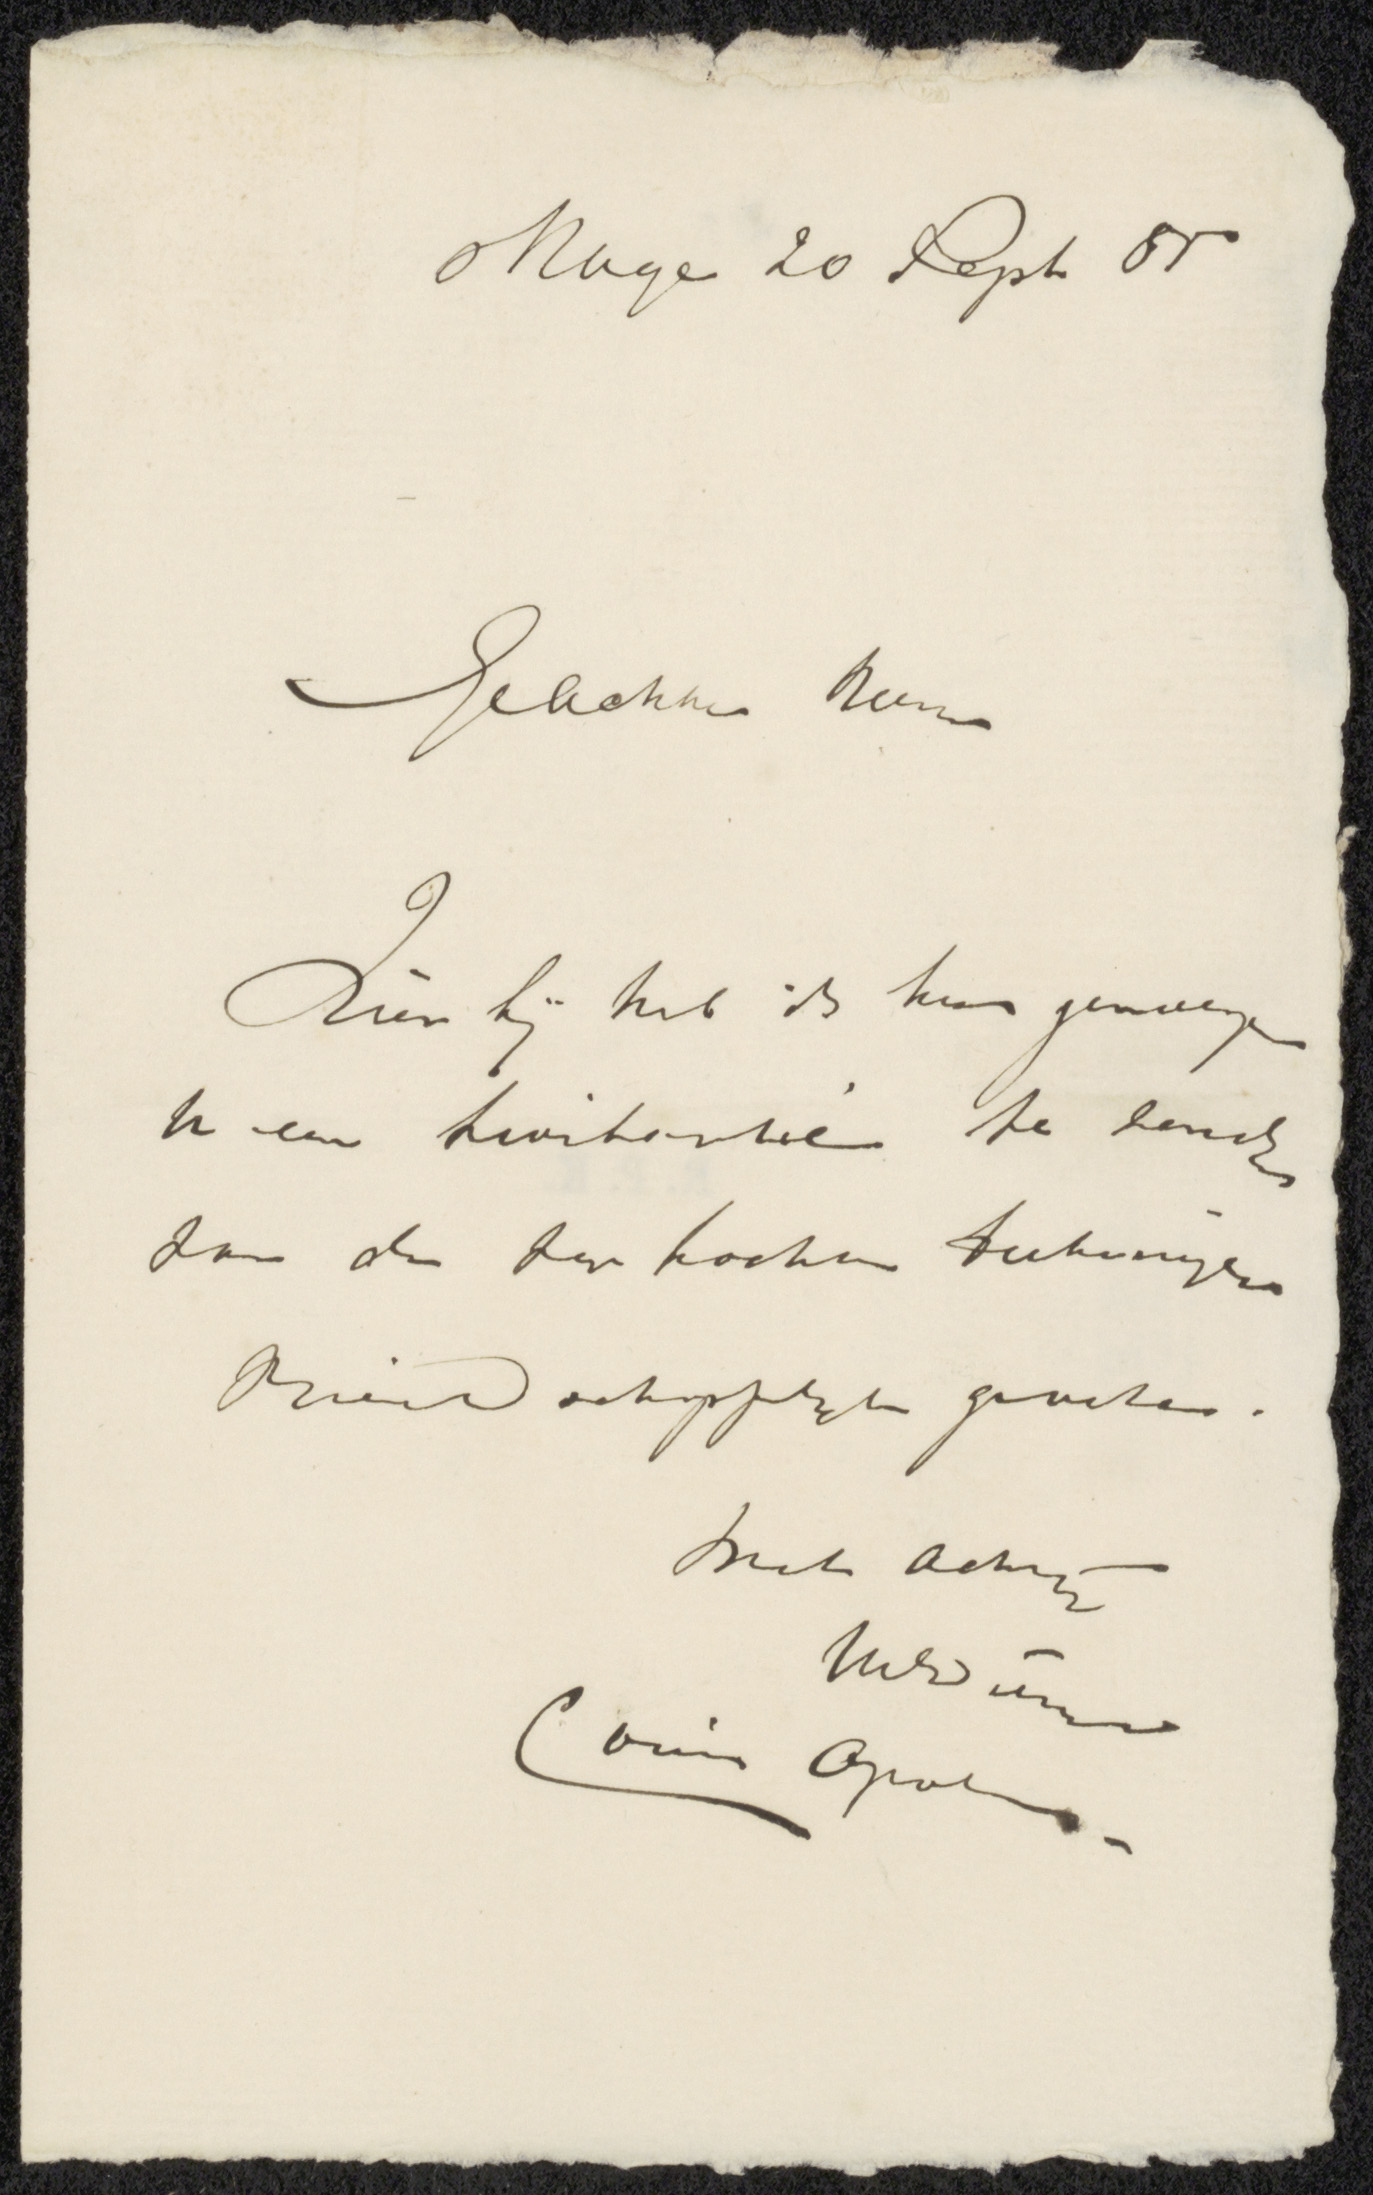 Hage 20 Sept 85
Geachte Heer
Hier bij heb ik het genoegen
U een kwitantie te zenden
van de verkochte teekeningen
Vriendschappelijk groeten.
Met achting
UEd
Louis Apol